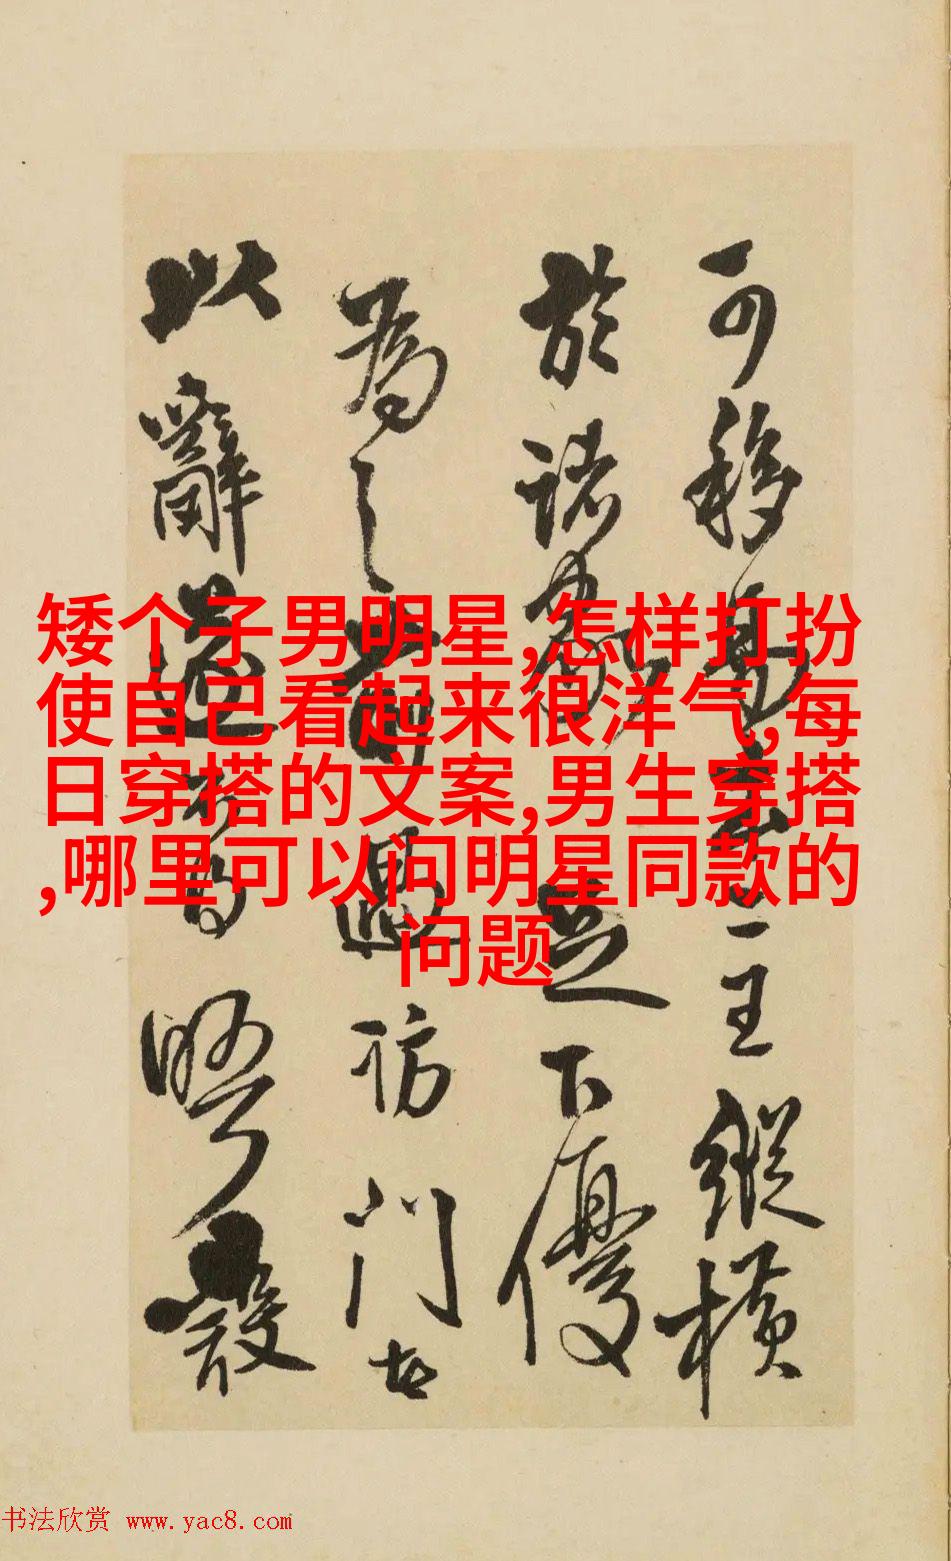 可移易主縱橫
於諸家下優
為之前訪門
以辭
矮个子男明星,怎样打扮
使自己看起来很洋气,每
日穿搭的文案,男生穿搭
,哪里可以问明星同款的
问题
书法欣赏 www.yac8.com